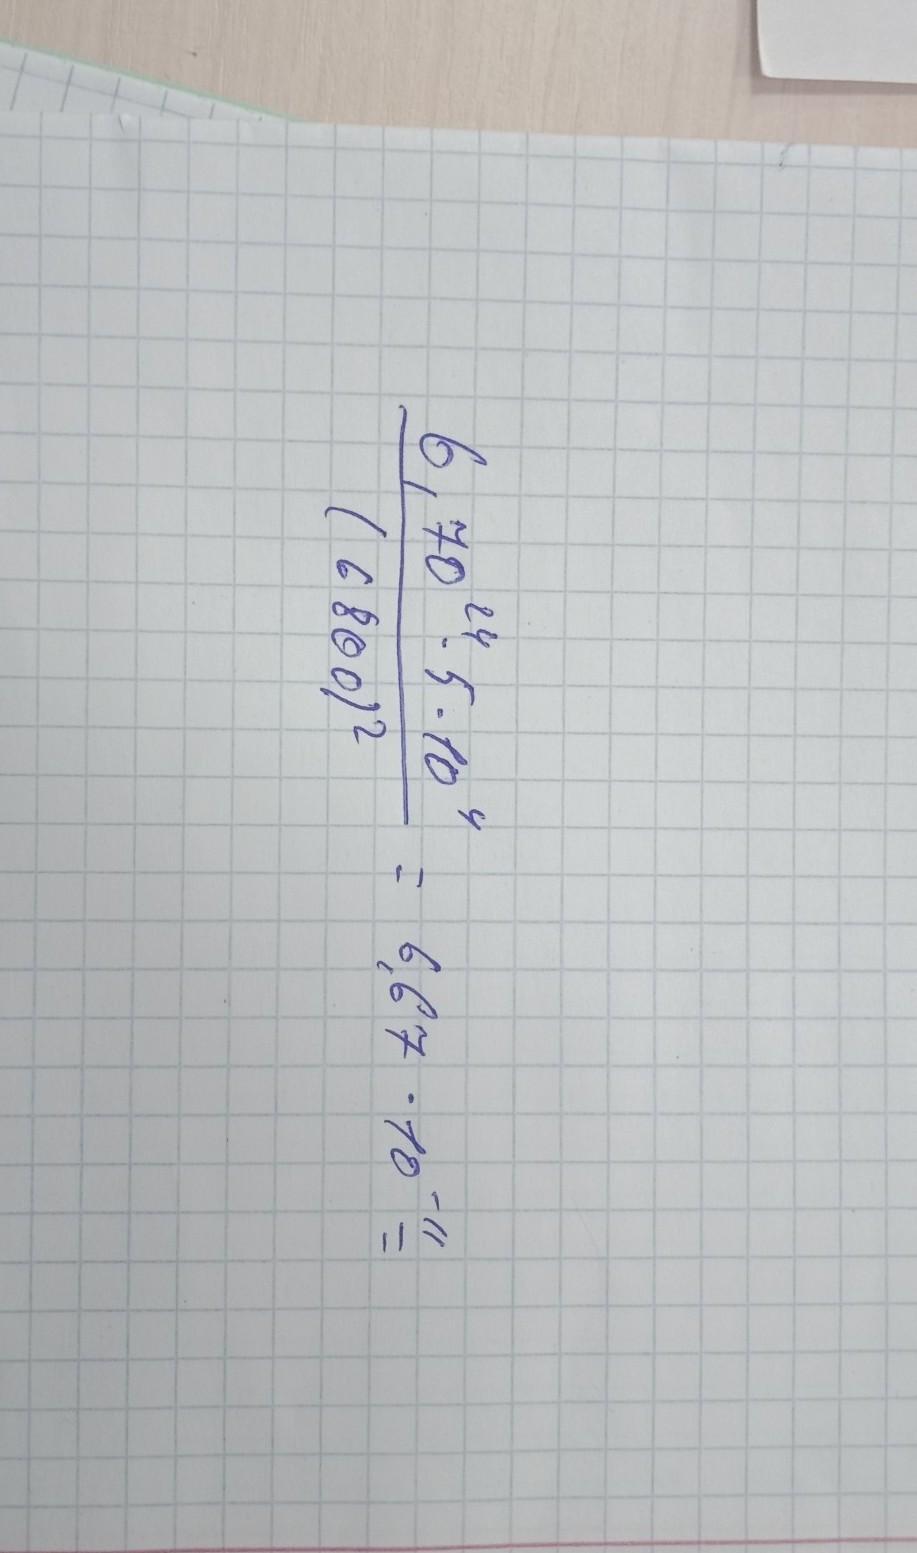 6,70²⁴ · 5 · 10⁴
(6800)² = 6,67 · 10⁻¹¹ =